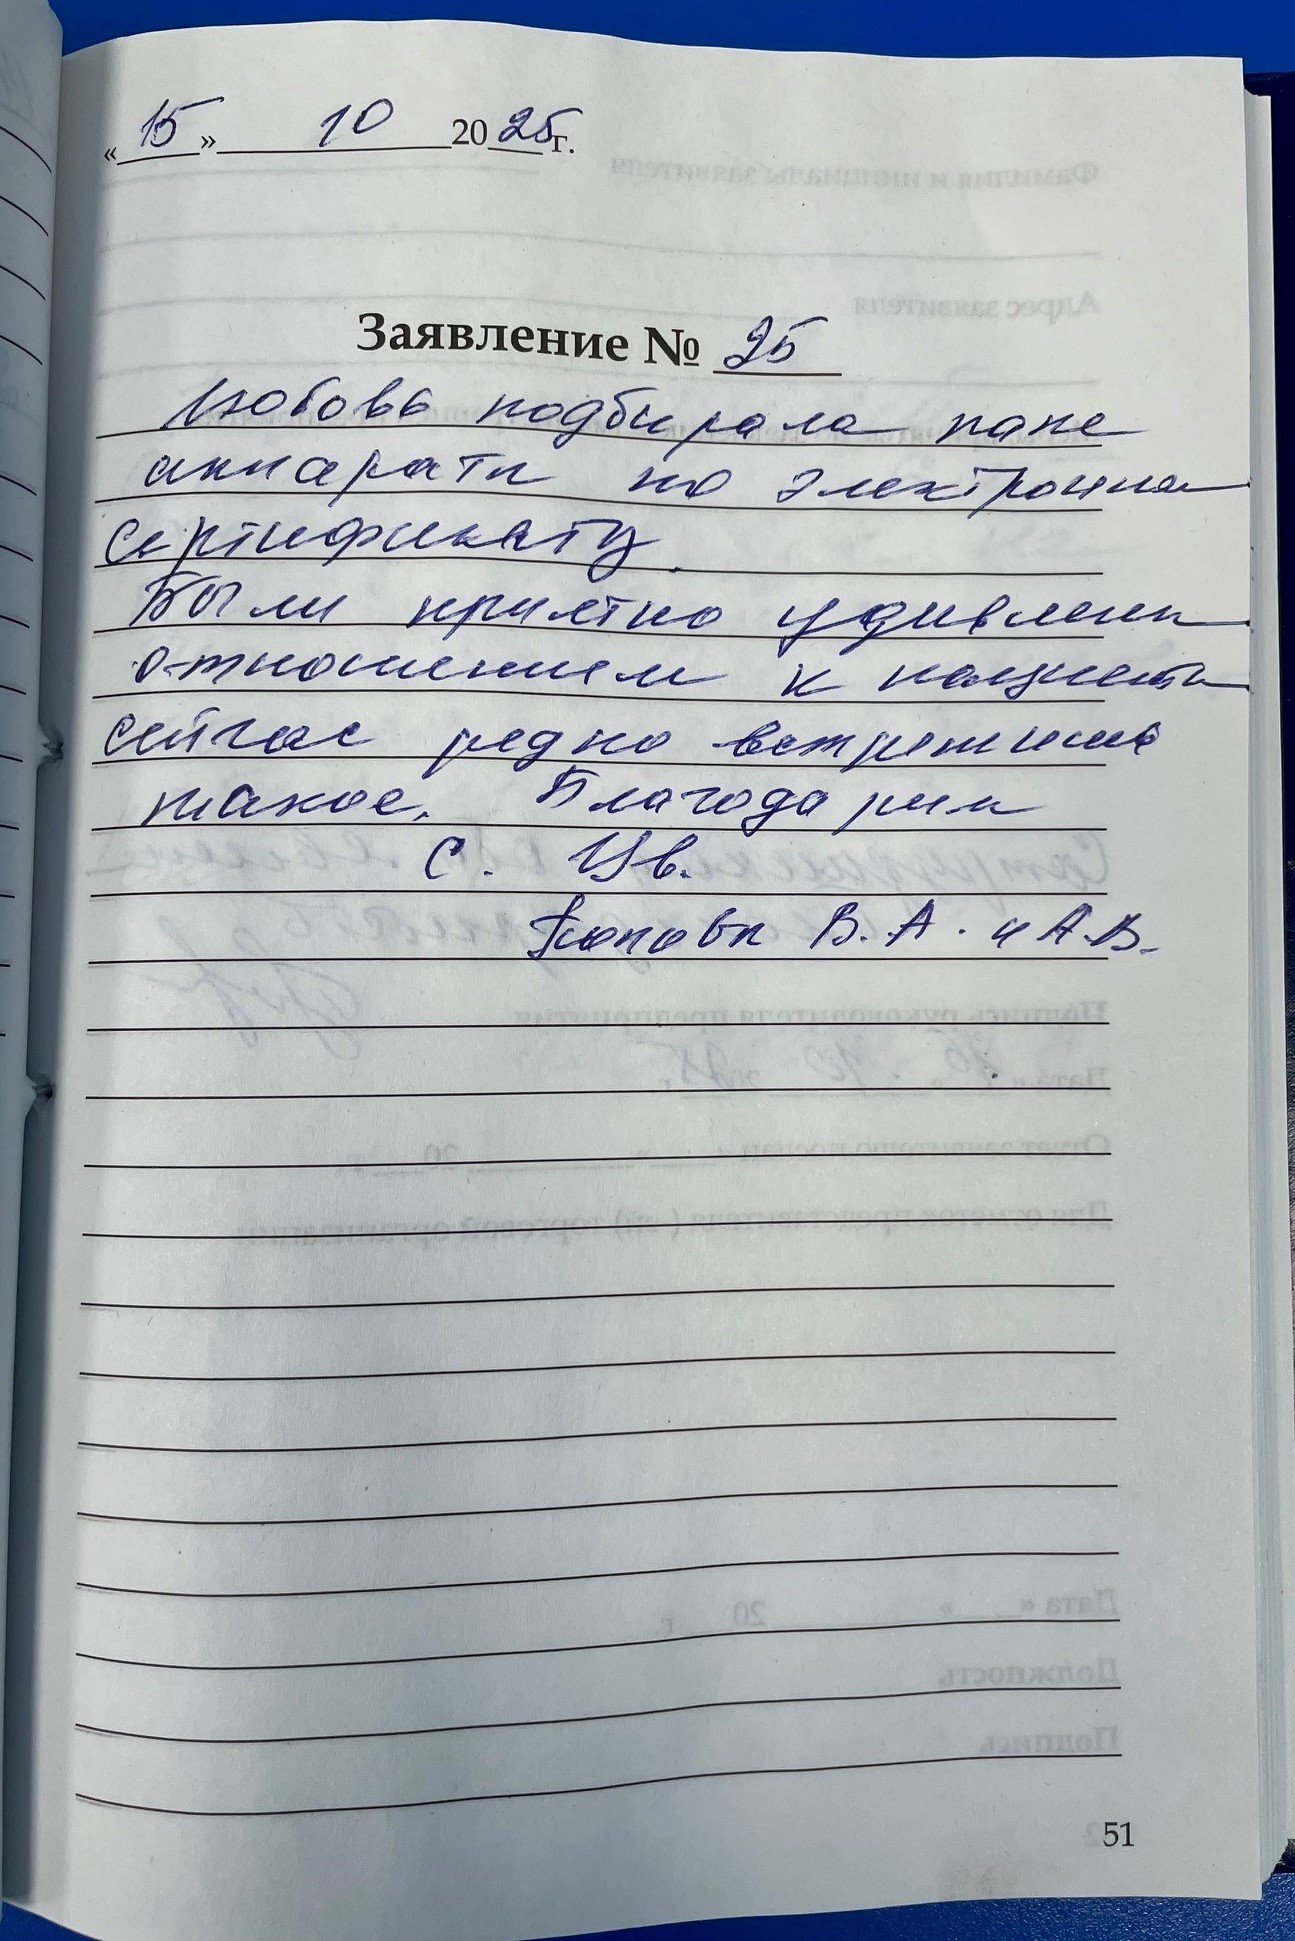 «15» 10 2025г.
Заявление № 25
Любовь подбирала папе
аппараты по электронном
сертификату.
Были приятно удивлены
отношением к пациенту
сейчас редко встретишь
такое. Благодарим
С. Ув.
Поповы В.А. и А.В.
51